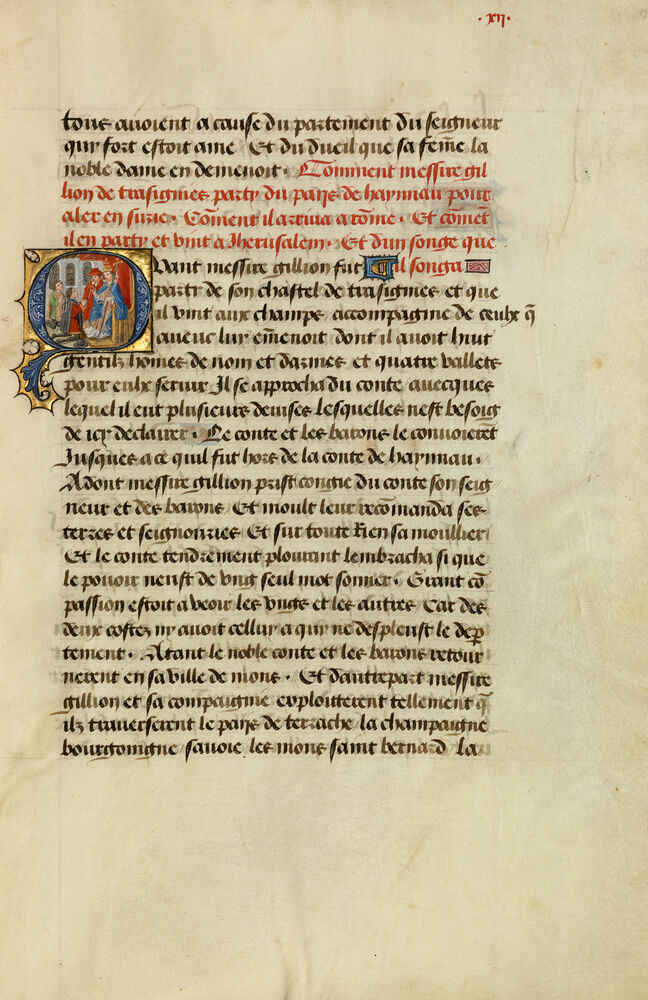 ·xij·
tous avoient a cause du partement du seigneur
quy fort estoit ame Et du dueil que sa feme la
noble dame en demenoit· Comment messire gil
lion de trasignies party du pays de haynnau pour
aler en surie· Coment il arriva a rome· Et comet
il en party et vint a Jherusalem· Et dun songe que
Quant messire gillion fut il songa
party de son chastel de trasignies et que
il vint aux champs accompagnie de ceulx q̄
avecuc luy emenoit dont il avoit huit
gentilz homes de nom et darmes et quatre valletz
pour eulx servir Il se approcha du conte avecques
lequel il eut plusieurs devises lesquelles nest besoig
de icy declairer· Le conte et les barons le convoieret
Jusques a ce quil fut hors de la conte de haynnau·
Adont messire gillion prist congie du conte son seig
neur et des barons Et moult leur recomanda ses
terres et seignouries Et sur toute Rien sa moullier
Et le conte tendrement plourant lembracha si que
le pouoir neust de ung seul mot sonner· Grant cō
passion estoit a veoir les ungs et les autres Car des
deux costez ny avoit celluy a quy ne despleust le dep̄
tement· Atant le noble conte et les barons retour
nerent en sa ville de mons· Et dautrepart messire
gillion et sa compaignie exploitterent tellement q̄
ilz traverserent le pays de terrache la champaigne
bourgoingne savoie les mons saint bernard la